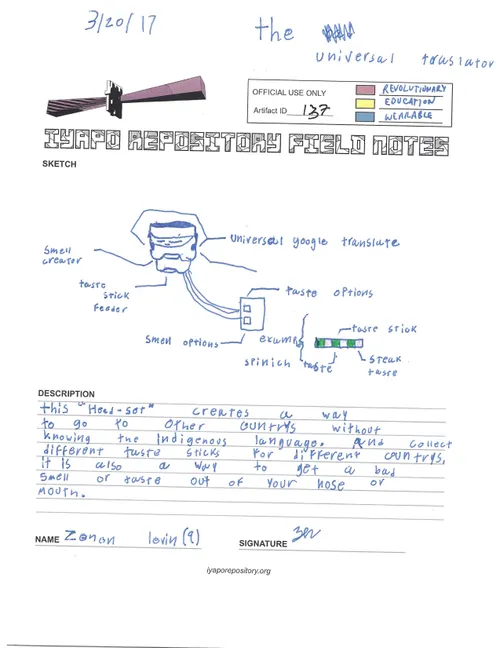 3/20/17
the
universal translator
OFFICIAL USE ONLY
Artifact ID 137
REVOLUTIONARY
EDUCATION
WEARABLE
IYAPO REPOSITORY FIELD NOTES
SKETCH
universal google translate
Smell creator
taste stick feeder
taste options
Smell options
example
taste stick
spinich taste
STEAK taste
DESCRIPTION
this "Head-set" creates a way
to go to other countrys without
knowing the Indigenous language. And collect
different taste sticks for different countrys,
it is also a way to get a bad
smell or taste out of your nose or
mouth.
NAME Zenon levin (9)
SIGNATURE
iyaporepository.org